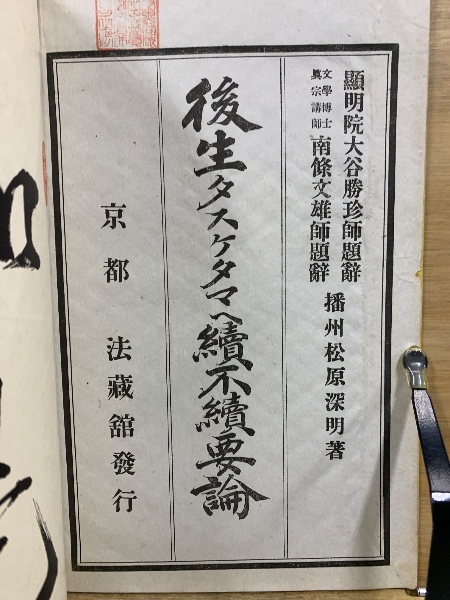 顯明院大谷勝珍師題辭
文學博士
眞宗講師
南條文雄師題辭
播州松原深明著
後生タスケタマヘ續不續要論
京都 法藏館發行